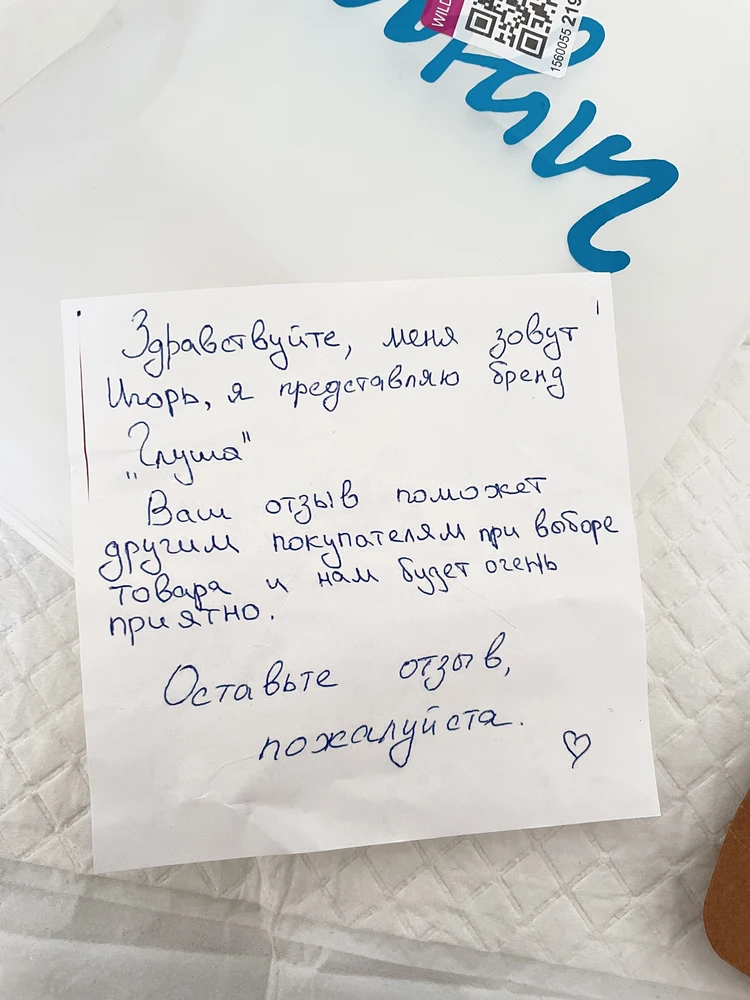 WILD
1560055 219
Здравствуйте, меня зовут
Игорь, я представляю бренд
„Глуша"
Ваш отзыв поможет
другим покупателям при выборе
товара и нам будет очень
приятно.
Оставьте отзыв,
пожалуйста. ♡